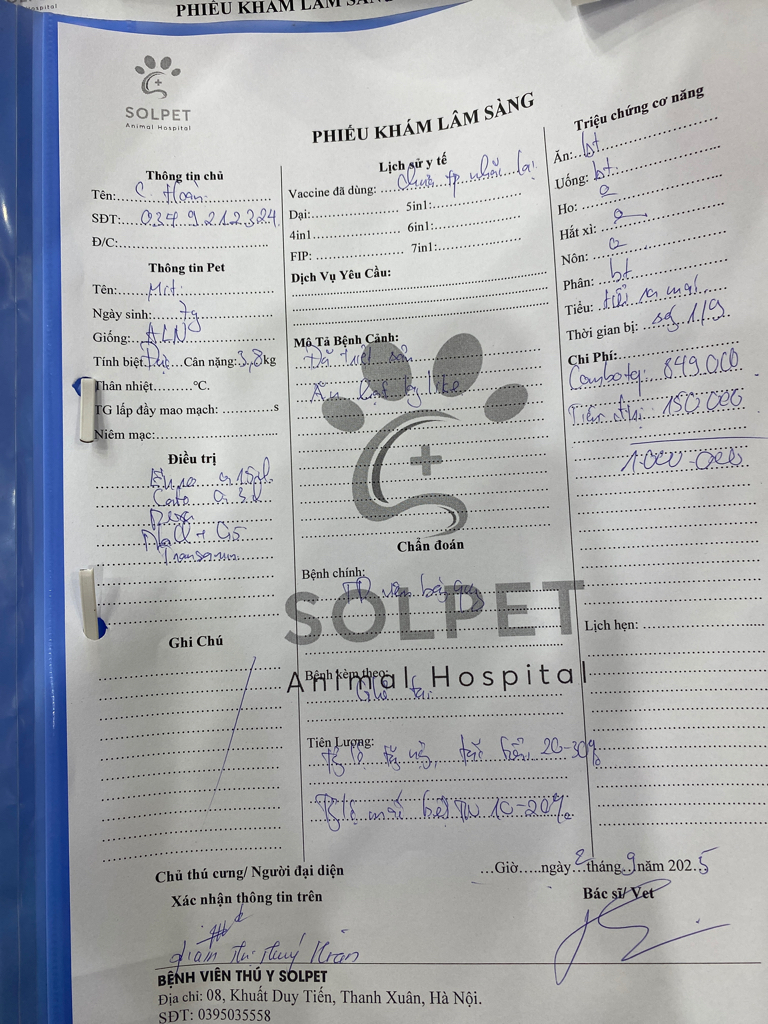 PHIẾU KHÁM LÂM SÀNG
SOLPET
Animal Hospital
PHIẾU KHÁM LÂM SÀNG
Thông tin chủ
Tên: C. Hoàn
SĐT: 0349212324
Đ/C:
Thông tin Pet
Tên: Mít
Ngày sinh: 7g
Giống: ALN
Tính biệt: Đực Cân nặng: 3,8 kg
Thân nhiệt °C.
TG lấp đầy mao mạch: s
Niêm mạc:
Điều trị
Cata 0,3
NaCl + G5
Transamin
Ghi Chú
Lịch sử y tế
Vaccine đã dùng: Chưa tp nhắc lại
Dại: 5in1:
4in1 6in1:
FIP: 7in1:
Dịch Vụ Yêu Cầu:
Mô Tả Bệnh Cảnh:
Đã triệt sản
Ăn hạt
SOLPET
Animal Hospital
Chẩn đoán
Bệnh chính:
viêm bàng
Bệnh kèm theo:
Ghẻ tai
Tiên Lượng:
Tỷ lệ tái 20-30%
Tỷ lệ 10-20%
Triệu chứng cơ năng
Ăn: bt
Uống: bt
Ho: 0
Hắt xì: 0
Nôn: 0
Phân: bt
Tiểu: tiểu ra máu
Thời gian bị: sg 1/9
Chi Phí:
Combo tq: 849.000
150.000
1.000.000
Lịch hẹn:
Chủ thú cưng/ Người đại diện
Xác nhận thông tin trên
...Giờ.....ngày 2 tháng 9 năm 2025
Bác sĩ/ Vet
BỆNH VIỆN THÚ Y SOLPET
Địa chỉ: 08, Khuất Duy Tiến, Thanh Xuân, Hà Nội.
SĐT: 0395035558